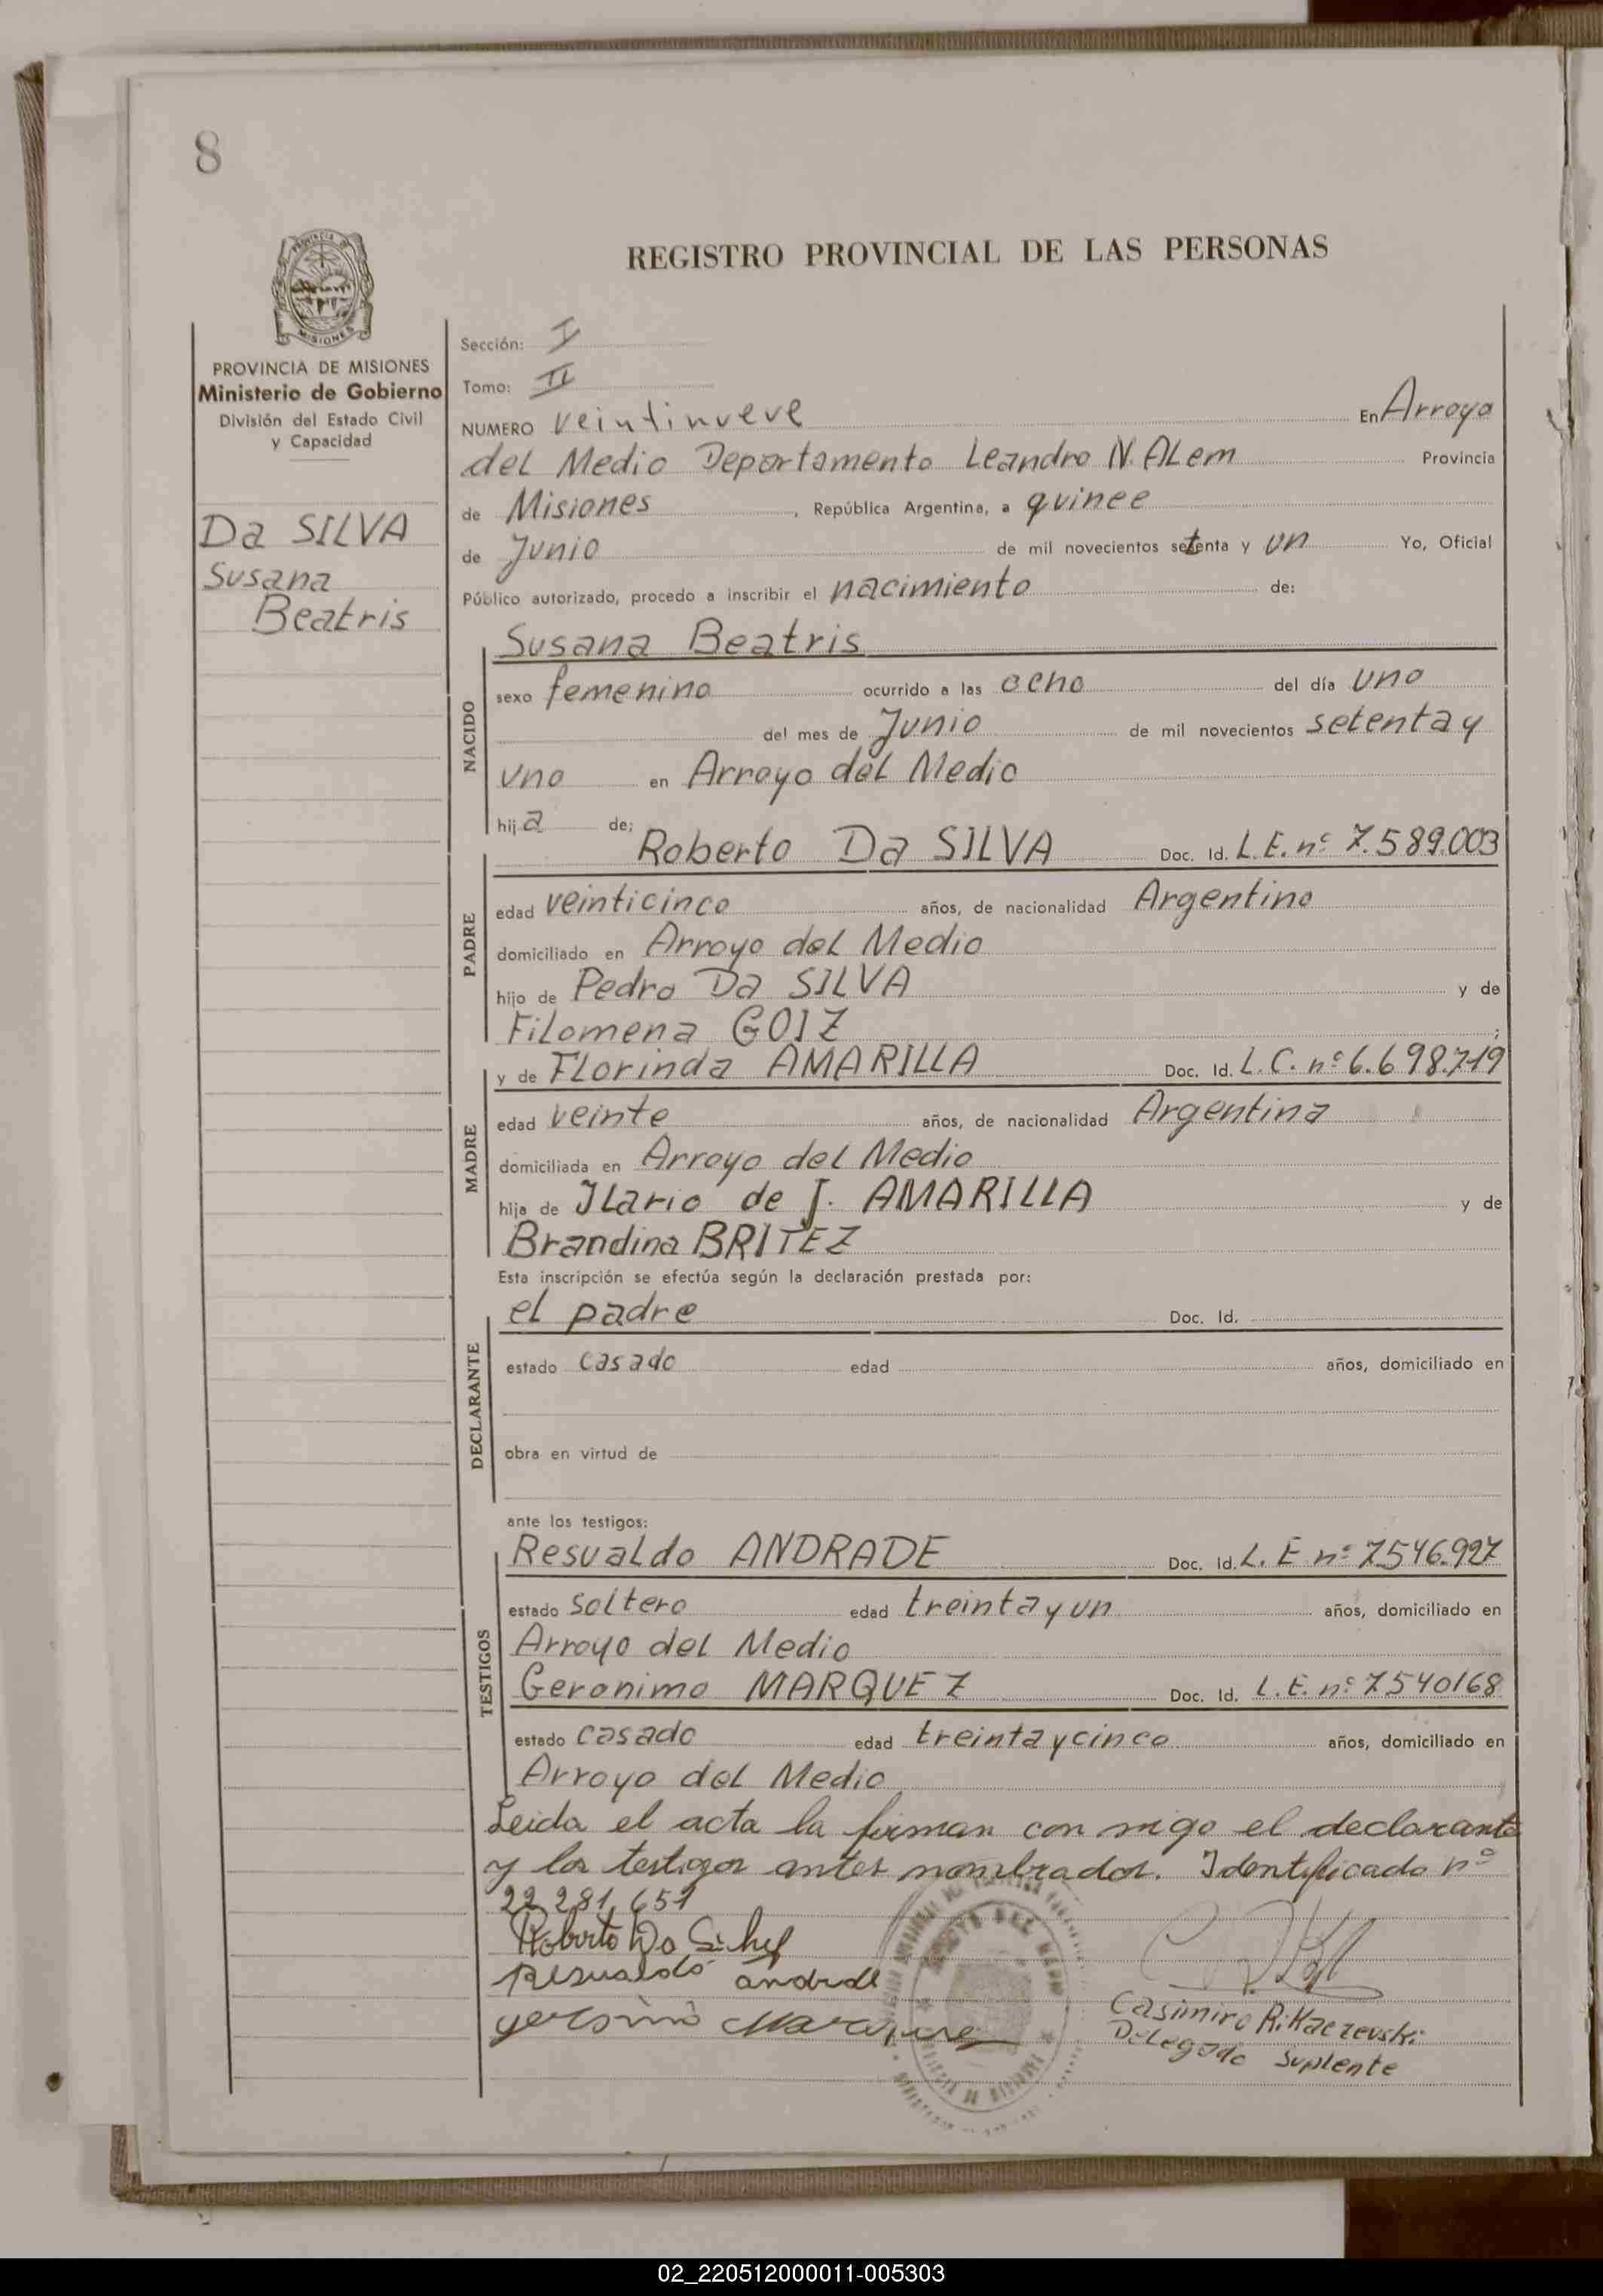 8
REGISTRO PROVINCIAL DE LAS PERSONAS
PROVINCIA DE MISIONES
Ministerio de Gobierno
División del Estado Civil
y Capacidad
Da SILVA
Susana
Beatris
Sección: I
Tomo: II
NUMERO veintinueve En Arroyo
del Medio Departamento Leandro N. ALem Provincia
de Misiones, República Argentina, a quince
de Junio de mil novecientos setenta y un Yo, Oficial
Público autorizado, procedo a inscribir el nacimiento de:
NACIDO
Susana Beatris
sexo femenino ocurrido a las ocho del día uno
del mes de Junio de mil novecientos setenta y
uno en Arroyo del Medio
hija de:
PADRE
Roberto Da SILVA Doc. Id. L.E. nº 7.589.003
edad veinticinco años, de nacionalidad Argentino
domiciliado en Arroyo del Medio
hijo de Pedro Da SILVA y de
Filomena GOIZ;
MADRE
y de Florinda AMARILLA Doc. Id. L.C. nº 6.698.719
edad veinte años, de nacionalidad Argentina
domiciliada en Arroyo del Medio
hija de ILario de J. AMARILLA y de
Brandina BRITEZ
Esta inscripción se efectúa según la declaración prestada por:
DECLARANTE
el padre Doc. Id.
estado casado edad años, domiciliado en
obra en virtud de
ante los testigos:
TESTIGOS
Resualdo ANDRADE Doc. Id. L.E nº 7.546.927
estado soltero edad treinta y un años, domiciliado en
Arroyo del Medio
Geronimo MARQUEZ Doc. Id. L.E. nº 7.540168
estado casado edad treinta y cinco años, domiciliado en
Arroyo del Medio
Leida el acta la firman con migo el declarante
y los testigos antes nombrados. Identificado nº
22.281.651
Roberto Da Silva
Resualdo andrade
Casimiro R. Kaczevski
Delegado Suplente
02_220512000011-005303